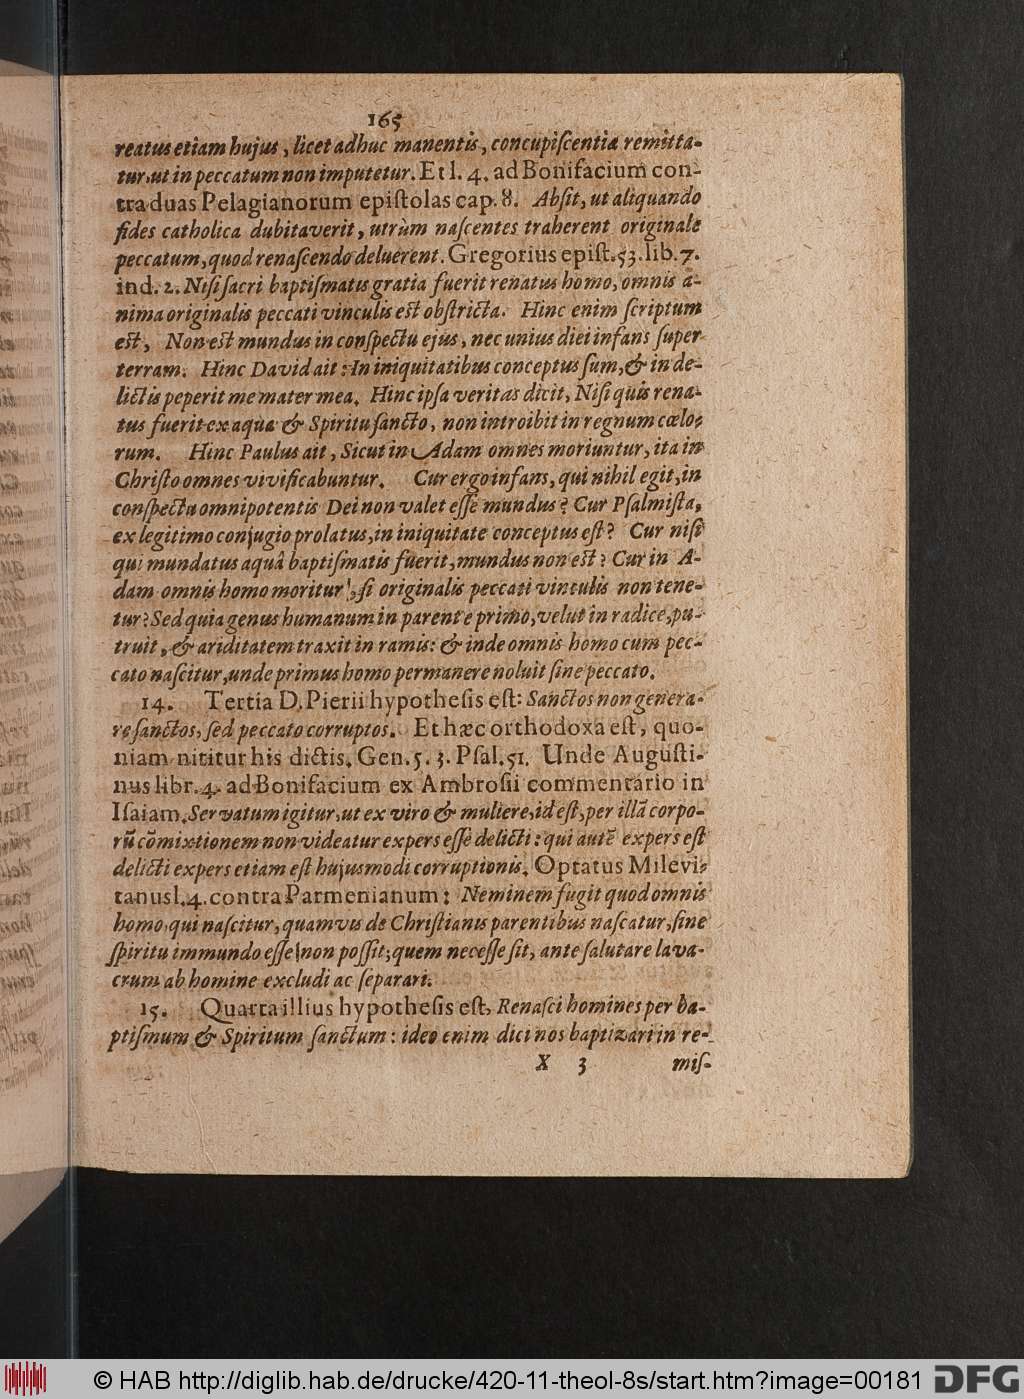 165
reatus etiam hujus, licet adhuc manentis, concupiſcentiæ remitta-
tur, ut in peccatum non imputetur. Et l. 4. ad Bonifacium con-
tra duas Pelagianorum epiſtolas cap. 8. Abſit, ut aliquando
fides catholica dubitaverit, utrùm naſcentes traherent originale
peccatum, quod renaſcendo deluerent. Gregorius epiſt. 53. lib. 7.
ind. 2. Niſi ſacri baptiſmatis gratia fuerit renatus homo, omnis a-
nima originalis peccati vinculis eſt obſtricta. Hinc enim ſcriptum
eſt, Non eſt mundus in conſpectu ejus, nec unius diei infans ſuper
terram. Hinc David ait: In iniquitatibus conceptus ſum, & in de-
lictis peperit me mater mea. Hinc ipſa veritas dicit, Niſi quis rena-
tus fuerit ex aqua & Spiritu ſancto, non introibit in regnum cœlo-
rum. Hinc Paulus ait, Sicut in Adam omnes moriuntur, ita in
Chriſto omnes vivificabuntur. Cur ergo infans, qui nihil egit, in
conſpectu omnipotentis Dei non valet eſſe mundus? Cur Pſalmiſta,
ex legitimo conjugio prolatus, in iniquitate conceptus eſt? Cur niſi
qui mundatus aquâ baptiſmatis fuerit, mundus non eſt? Cur in A-
dam omnis homo moritur, ſi originalis peccati vinculis non tene-
tur? Sed quia genus humanum in parente primo, velut in radice, pu-
truit, & ariditatem traxit in ramis: & inde omnis homo cum pec-
cato naſcitur, unde primus homo permanere noluit ſine peccato.
14. Tertia D. Pierii hypotheſis eſt: Sanctos non genera-
re ſanctos, ſed peccato corruptos. Et hæc orthodoxa eſt, quo-
niam nititur his dictis, Gen. 5. 3. Pſal. 51. Unde Auguſti-
nus libr. 4. ad Bonifacium ex Ambroſii commentario in
Iſaiam. Servatum igitur, ut ex viro & muliere, id eſt, per illā corpo-
rū cōmixtionem non videatur expers eſſe delicti: qui autē expers eſt
delicti expers etiam eſt hujusmodi corruptionis. Optatus Milevi-
tanus l. 4. contra Parmenianum: Neminem fugit quod omnis
homo, qui naſcitur, quamvis de Chriſtianis parentibus naſcatur, ſine
ſpiritu immundo eſſe non poſſit; quem neceſſe ſit, ante ſalutare lava-
crum ab homine excludi ac ſeparari.
15. Quarta illius hypotheſis eſt, Renaſci homines per ba-
ptiſmum & Spiritum ſanctum: ideo enim dici nos baptizari in re-
X 3 miſ-
© HAB http://diglib.hab.de/drucke/420-11-theol-8s/start.htm?image=00181
DFG